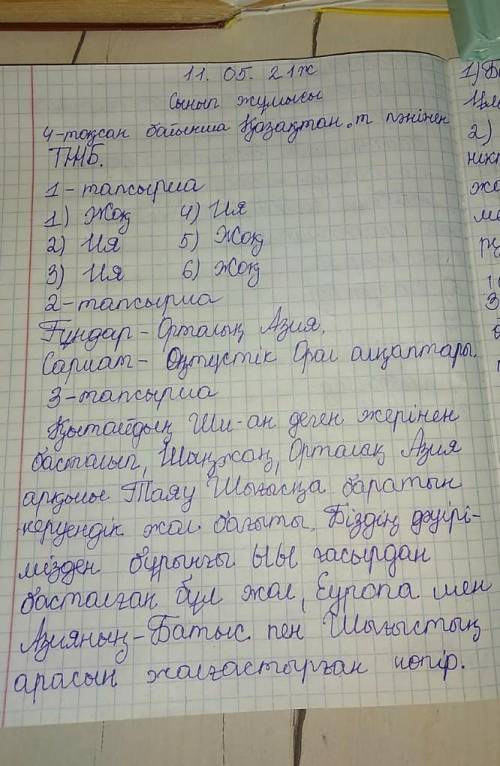 11. 05. 21ж
Сынып жұмысы
4-тоқсан бойынша Қазақтан.т пәнінен
ТЖБ.
1-тапсырма
1) Жоқ 4) Ия
2) Ия 5) Жоқ
3) Ия 6) Жоқ
2-тапсырма
Ғұндар-Орталық Азия,
Сармат- Оңтүстік Орал алқаптары.
3-тапсырма
Қытайдың Ши-ан деген жерінен
басталып, Шыңжаң, Орталық Азия
арқылы Таяу Шығысқа баратын
керуендік жол бағыты. Біздің дәуірі-
мізден бұрынғы ЫЫ ғасырдан
басталған бұл жол, Еуропа мен
Азияның-Батыс пен Шығыстың
арасын жалғастырған көпір.
1)
2)